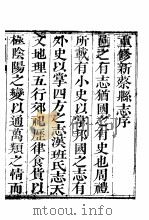 重修新蔡縣志序
邑之有志猶國之有史也周禮
所載有小史以掌邦國之志有
外史以掌四方之志漢班氏志天
文地理五行郊祀歷律食貨以
極陰陽之變以通萬類之情而